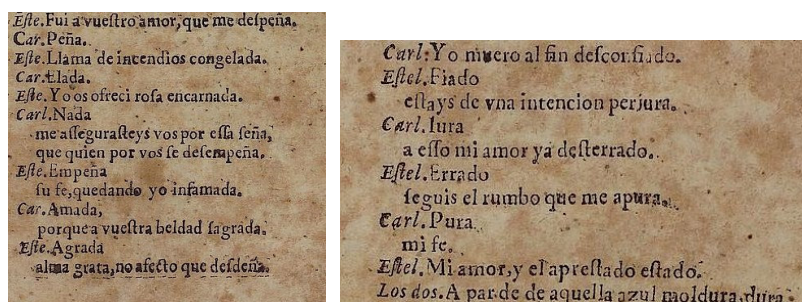 Eſte. Fui a vueſtro amor, que me deſpeña.
Car. Peña.
Eſte. Llama de incendios congelada.
Car. Elada.
Eſte. Yo os ofreci roſa encarnada.
Carl. Nada
me aſſeguraſteys vos por eſſa ſeña,
que quien por vos ſe deſempeña.
Eſte. Empeña
ſu fe, quedando yo infamada.
Car. Amada,
porque a vueſtra beldad ſagrada.
Eſte. Agrada
alma grata, no afecto que deſdeña.
Carl. Yo muero al fin deſconfiado.
Eſtel. Fiado
eſtays de vna intencion perjura.
Carl. Iura
a eſſo mi amor ya deſterrado.
Eſtel. Errado
ſeguis el rumbo que me apura.
Carl. Pura
mi fe.
Eſtel. Mi amor, y el apreſtado eſtado.
Los dos. A par de de aquella azul moldura, dura